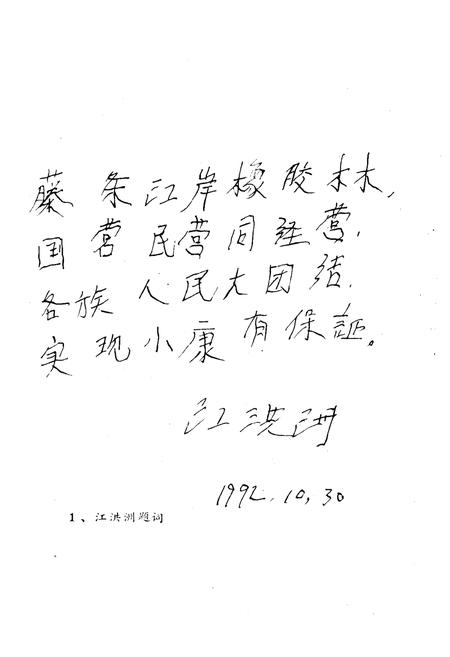 藤条江岸橡胶林,
国营民营同经营.
各族人民大团结.
实现小康有保证。
江洪洲
1992.10.30
1、江洪洲题词